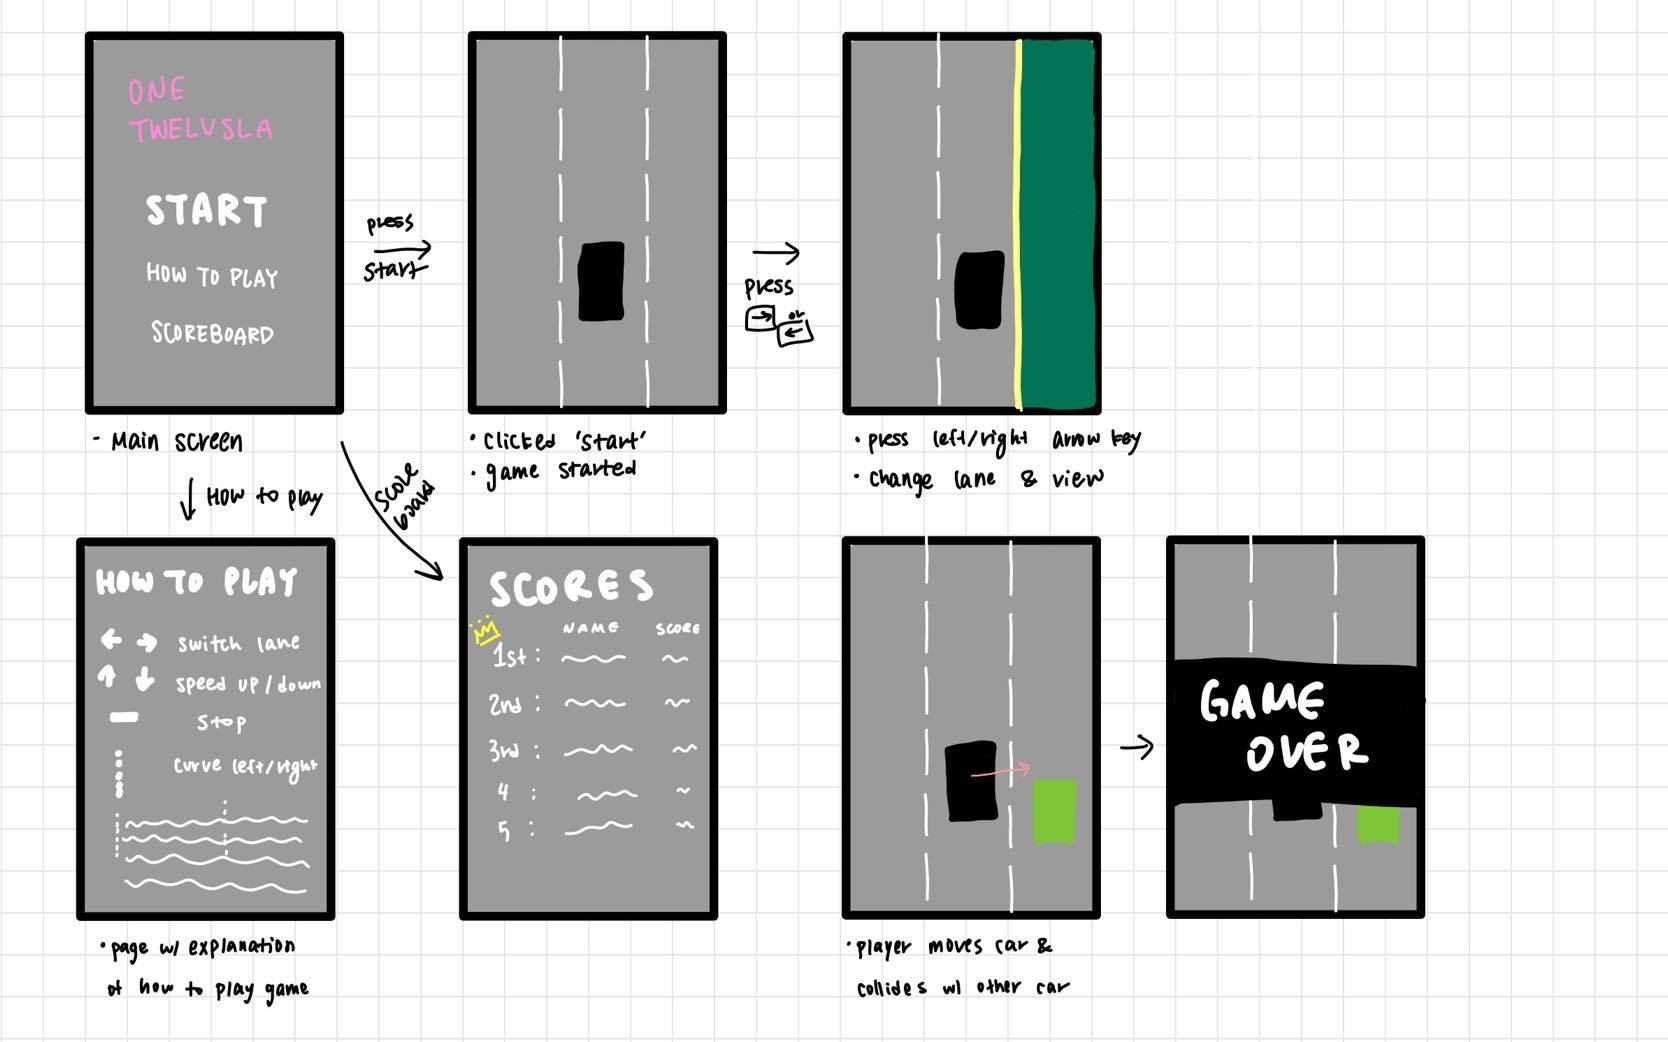 ONE
TWELVSLA
START
HOW TO PLAY
SCOREBOARD
- Main screen
press
start
• Clicked 'start'
• game started
press
→ or
←
• press left/right arrow key
• change lane & view
↓ How to play
score
board
HOW TO PLAY
← → switch lane
↑ ↓ speed up/down
stop
curve left/right
• page w/ explanation
of how to play game
SCORES
NAME SCORE
1st :
2nd :
3rd :
4 :
5 :
• player moves car &
collides w/ other car
GAME
OVER